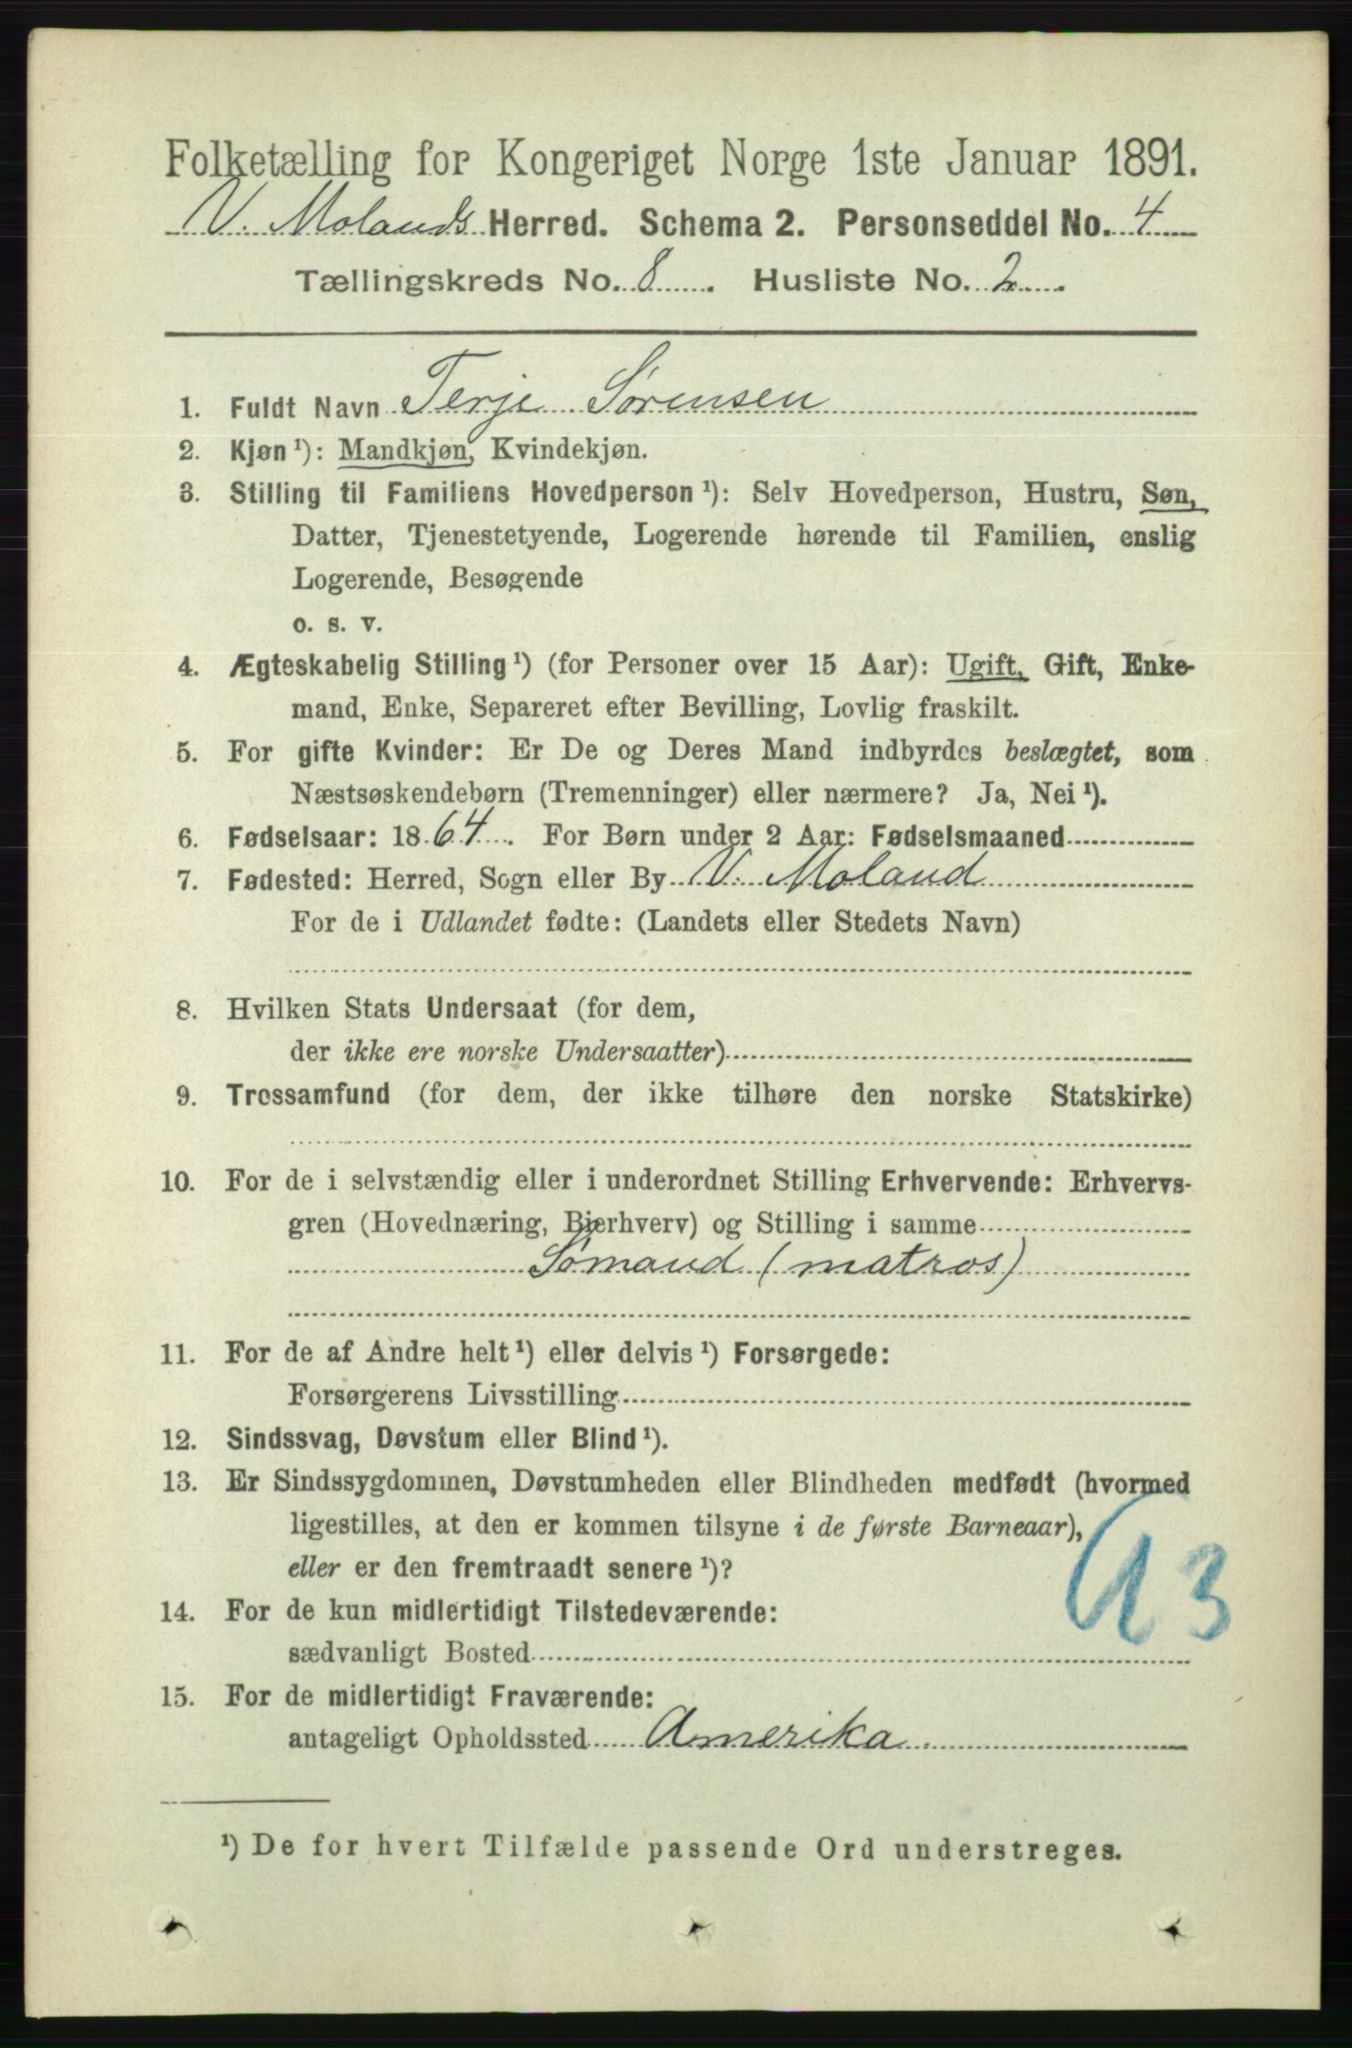 Folketælling for Kongeriget Norge 1ste Januar 1891.
V. Molands Herred. Schema 2. Personseddel No. 4
Tællingskreds No. 8. Husliste No. 2.
1. Fuldt Navn Terje Sørensen
2. Kjøn¹): Mandkjøn, Kvindekjøn.
3. Stilling til Familiens Hovedperson¹): Selv Hovedperson, Hustru, Søn,
Datter, Tjenestetyende, Logerende hørende til Familien, enslig
Logerende, Besøgende
o. s. v.
4. Ægteskabelig Stilling¹) (for Personer over 15 Aar): Ugift, Gift, Enke-
mand, Enke, Separeret efter Bevilling, Lovlig fraskilt.
5. For gifte Kvinder: Er De og Deres Mand indbyrdes beslægtet, som
Næstsøskendebørn (Tremenninger) eller nærmere? Ja, Nei¹).
6. Fødselsaar: 1864. For Børn under 2 Aar: Fødselsmaaned
7. Fødested: Herred, Sogn eller By V. Moland
For de i Udlandet fødte: (Landets eller Stedets Navn)
8. Hvilken Stats Undersaat (for dem,
der ikke ere norske Undersaatter)
9. Trossamfund (for dem, der ikke tilhøre den norske Statskirke)
10. For de i selvstændig eller i underordnet Stilling Erhvervende: Erhvervs-
gren (Hovednæring, Bierhverv) og Stilling i samme
Sømand (matros)
11. For de af Andre helt¹) eller delvis¹) Forsørgede:
Forsørgerens Livsstilling
12. Sindssvag, Døvstum eller Blind¹).
13. Er Sindssygdommen, Døvstumheden eller Blindheden medfødt (hvormed
ligestilles, at den er kommen tilsyne i de første Barneaar),
eller er den fremtraadt senere¹)?
14. For de kun midlertidigt Tilstedeværende:
sædvanligt Bosted
15. For de midlertidigt Fraværende:
antageligt Opholdssted Amerika
¹) De for hvert Tilfælde passende Ord understreges.